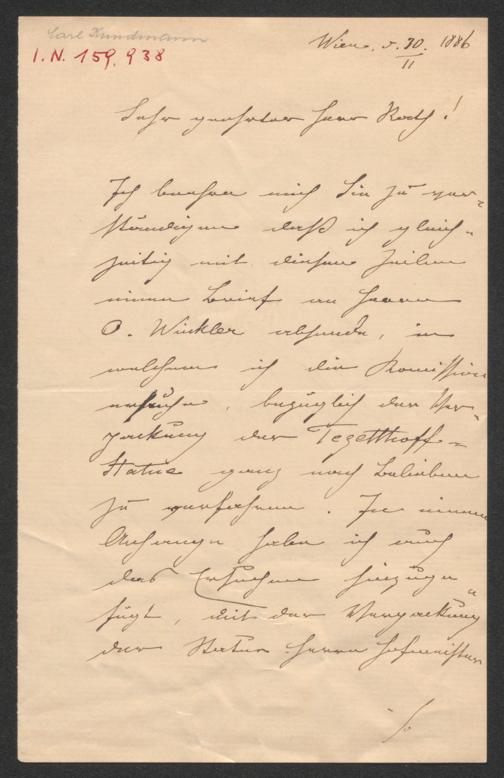 Carl Kundmann
I.N. 159.938
Wien. d. 30./11 1886
Sehr geehrter Herr Rath!
Ich beehre mich Sie zu ver-
ständigen daß ich gleich-
zeitig mit diesen Zeilen
einen Brief an Herrn
O. Winkler absende, in
welchem ich die Komission
ersuche, bezüglich der Ver-
packung der Tegetthoff-
Statue ganz nach Belieben
zu verfahren. In einem
Anhange habe ich auch
das Ersuchen hinzuge-
fügt, mit der Verpackung
der Statue Herrn Hofmeister